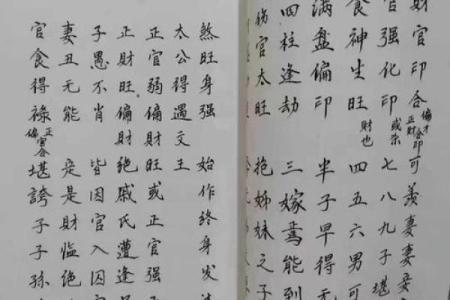 財官印合 偏才 正財 合印 可義妻妻妾
官强化印 或杀 七八九子堪
食神生旺 財也 四五六男可
滿盘偏印 半子早得无
四柱逢劫 三嫁焉能到
傷官太旺 抱姊妹之子
煞旺身强 始作终身发
太公得遇文王
正官弱偏官旺或正官强
正財旺偏財绝戚氏遭逢
子愚不肖 皆因官入囚
妻丑无能 定是財临绝
官食得祿 正偏官合 堪誇子子孫